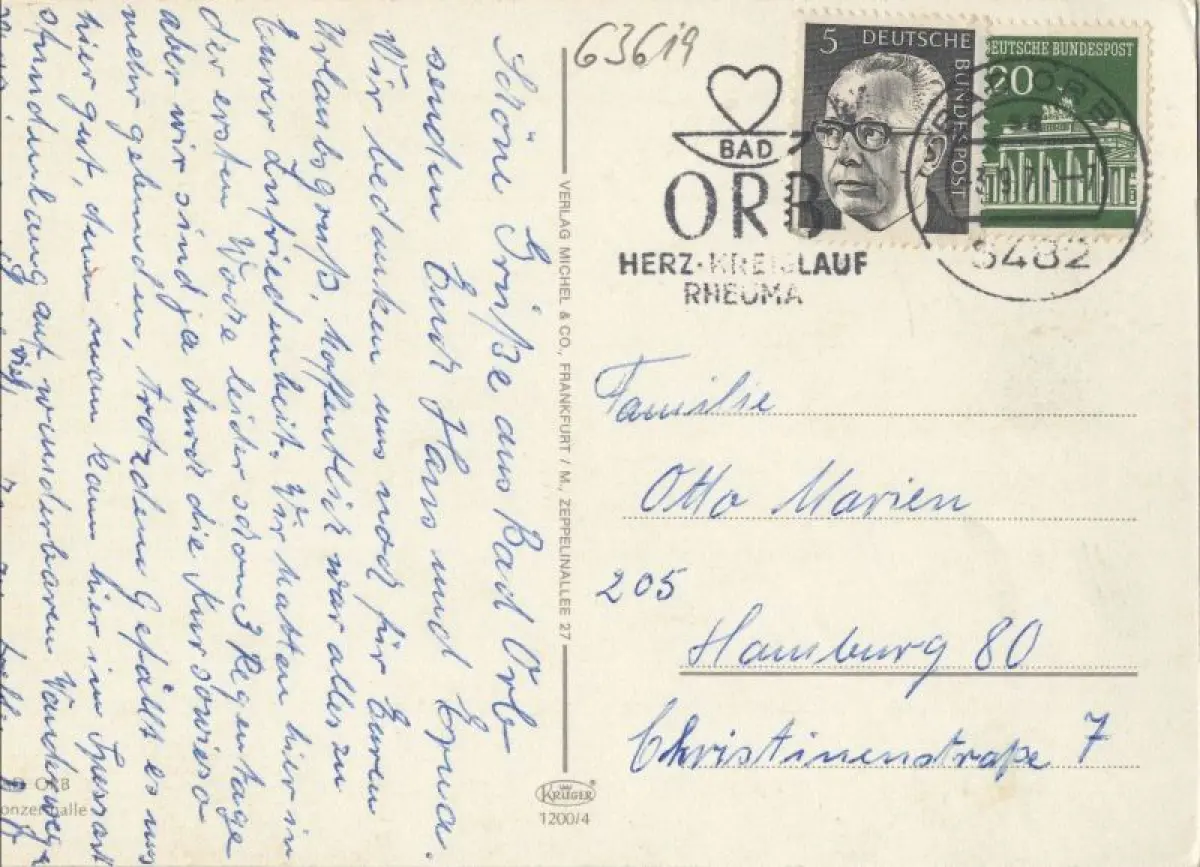 Schöne Grüße aus Bad Orb
senden Euch Hans und Erna.
Wir bedanken uns noch für Euren
Urlaubsgruß, hoffentlich war alles zu
Eurer Zufriedenheit. Wir hatten hier in
der ersten Woche leider schon 3 Regentage
aber wir sind ja durch die Kur sowieso
mehr gebunden, trotzdem gefällt es uns
hier gut, denn man kann hier im Spessart
stundenlang auf wunderbaren
ORB
onzerthalle
VERLAG MICHEL & CO., FRANKFURT / M., ZEPPELINALLEE 27
KRÜGER
1200/4
63619
BAD
ORB
HERZ·KREISLAUF
RHEUMA
5 DEUTSCHE
BUNDESPOST
DEUTSCHE BUNDESPOST
20
ORB
9.71
6482
Familie
Otto Marien
205
Hamburg 80
Christinenstraße 7